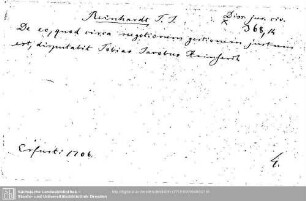 Reinhardt T. J. Diss. jur. civ.
368, 14
De eo, quod circa negotiorum gestionem justum
est, disputabit Tobias Jacobus Reinhart
Erfurti 1706. 4.
Sächsische Landesbibliothek -
Staats- und Universitätsbibliothek Dresden